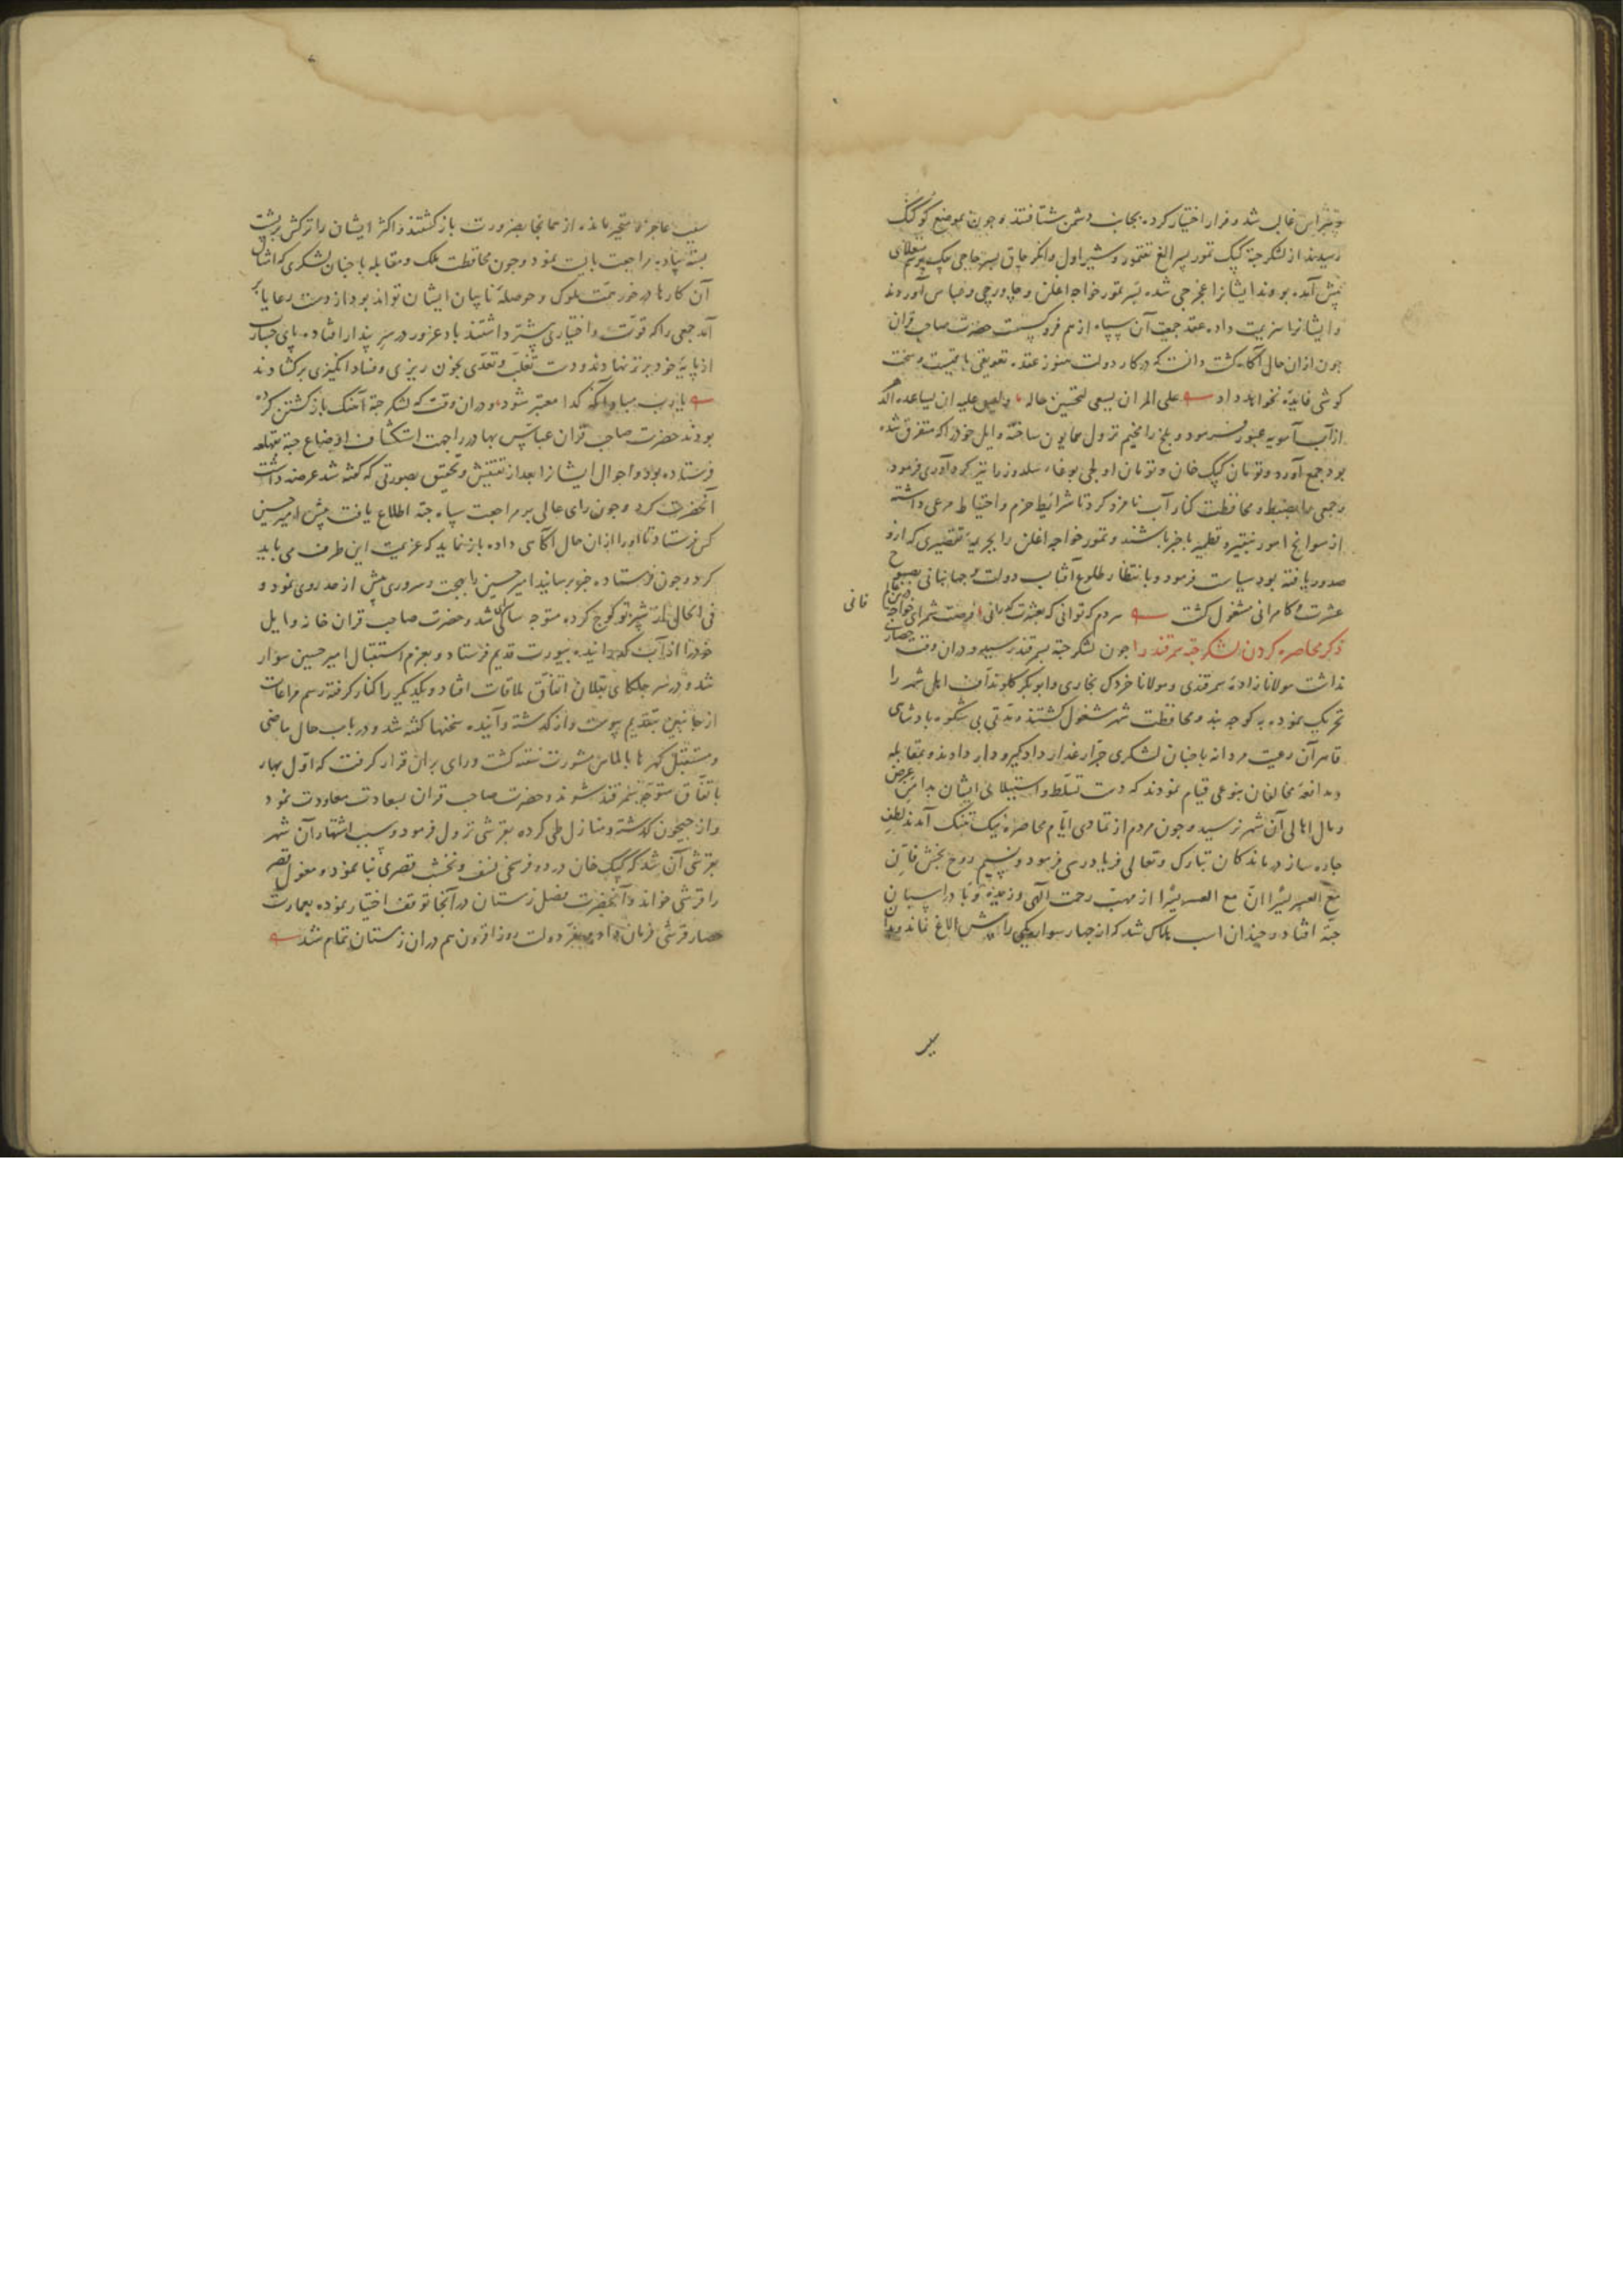 غالب شد و فرار اختیار کرده بجانب دشمن شتافتند و چون بموضع کوکنک
رسیدند از لشکر جته کپک تمور پسر الغ تقتمور و شیراول و انکرچاق پسر حاجی بیک
پیش آمده بودند ایشانرا غجرجی شده بسر تمور خواجه اغلن و جاورجی و عباس آوردند
و ایشانرا هزیمت داده عقد جمعیت آن سپاه از هم فرو کسست حضرت صاحب قران
چون ازان حال آکاه کشت دانست که در کار دولت هنوز عقده تعویقی باقیست و سخت
کوشی فایدۀ نخواهد داد علی المرء ان یسعی لتحسین حاله و لیس علیه ان یساعده
از آب آمویه عبور فرمود و بلخ را مخیم نزول همایون ساخته و ایل خود را که متفرق شده
بود جمع آورد و تومان کپک خان و تومان اولجی بوغاء سلدوز را نیز کرد آوری فرمود
و جمعی را بضبط و محافظت کنار آب نامزد کرد تا شرائط حزم و احتیاط مرعی داشته
از سوانح امور باخبر باشند و تمور خواجه اغلن را بجریمۀ تقصیری که ازو
صدور یافته بود سیاست فرمود و بانتظار طلوع آفتاب دولت و جهانبانی بصبوح
عشرت و کامرانی مشغول کشت هر دم که توانی که بعشرت کذرانی فرصت شمر ای خواجه
فانی
ذکر محاصره کردن لشکر جته سمرقند را چون لشکر جته بسمرقند رسید و دران وقت حصاری
نداشت مولانا زادۀ سمرقندی و مولانا خردک بخاری و ابوبکر کلوی نداف اهل شهر را
تحریک نموده به کوچه بند و محافظت شهر مشغول کشتند و مدتی بی شکوه پادشاهی
قاهر آن رعیت مردانه با چنان لشکری جرار غدار داد کیر و دار دادند و بمقابله
و مدافعۀ مخالفان بنوعی قیام نمودند که دست تسلط و استیلای ایشان بدامن عرض
و مال اهالی آن شهر نرسید و چون مردم از تمادی ایام محاصره نیک تنک آمدند لطف
چاره ساز درماندکان تبارک و تعالی فریادرسی فرمود و نسیم روح بخش فان
مع العسر یسرا ان مع العسر یسرا از مهب رحمت الهی وزیده وبا در اسپان
جته افتاد و چندان اسب هلاک شد که از چهار سوار یکی را بیش الاغ نماند
عاجز و متحیر ماندند از همانجا بضرورت باز کشتند و اکثر ایشان را ترکش بر پشت
بسته پیاده مراجعت بایست نمود و چون محافظت ملک و مقابله با چنان لشکری که امثال
آن کارها درخور همت ملوک و حوصلۀ نابیان ایشان تواند بود از دست رعایا
آمد جمعی را که قوت و اختیاری بیشتر داشتند باد غرور در سر پندار افتاده پای جسارت
از پایۀ خود برتر نهادند و دست تغلب و تعدی بخون ریزی و فساد انکیزی برکشادند
یا رب مباد آنکه کدا معتبر شود و دران وقت که لشکر جته آهنک باز کشتن کرده
بودند حضرت صاحب قران عباس بهادر را جهت استکشاف اوضاع جته بقهلغه
فرستاده بود و احوال ایشانرا بعد از تفتیش و تحقیق بصورتی که کفته شد عرضه داشت
آنحضرت کرد و چون رای عالی بر مراجعت سپاه جته اطلاع یافت پیش امیر حسین
کس فرستاد تا او را ازان حال آکاهی داده باز نماید که عزیمت این طرف می باید
کرد و چون فرستاده خبر برسانید امیر حسین را بهجت و سروری بیش از حد روی نمود و
فی الحال از شبرتو کوچ کرده متوجه سالی سرای شد و حضرت صاحب قران خانه و ایل
خود را از آب کذرانیده بیورت قدیم فرستاد و بعزم استقبال امیر حسین سوار
شد و در سر جلکای بقلان اتفاق ملاقات افتاد و یکدیکر را کنار کرفته رسم مراعات
از جانبین بتقدیم پیوست و از کذشته و آینده سخنها کفته شد و در باب حال ماضی
و مستقبل کهرها بالماس مشورت سفته کشت و رای بران قرار کرفت که اول بهار
باتفاق متوجه سمرقند شوند و حضرت صاحب قران بسعادت معاودت نمود
و از جیحون کذشته و منازل طی کرده بقرشی نزول فرمود و سبب اشتهار آن شهر
بقرشی آن شد که کپک خان در دو فرسخی نسف و نخشب قصری بنا نموده و مغول قصر
را قرشی خوانند و آنحضرت فصل زمستان در آنجا توقف اختیار نموده بعمارت
حصار قرشی فرمان داد و بفر دولت روز افزون هم دران زمستان تمام شد